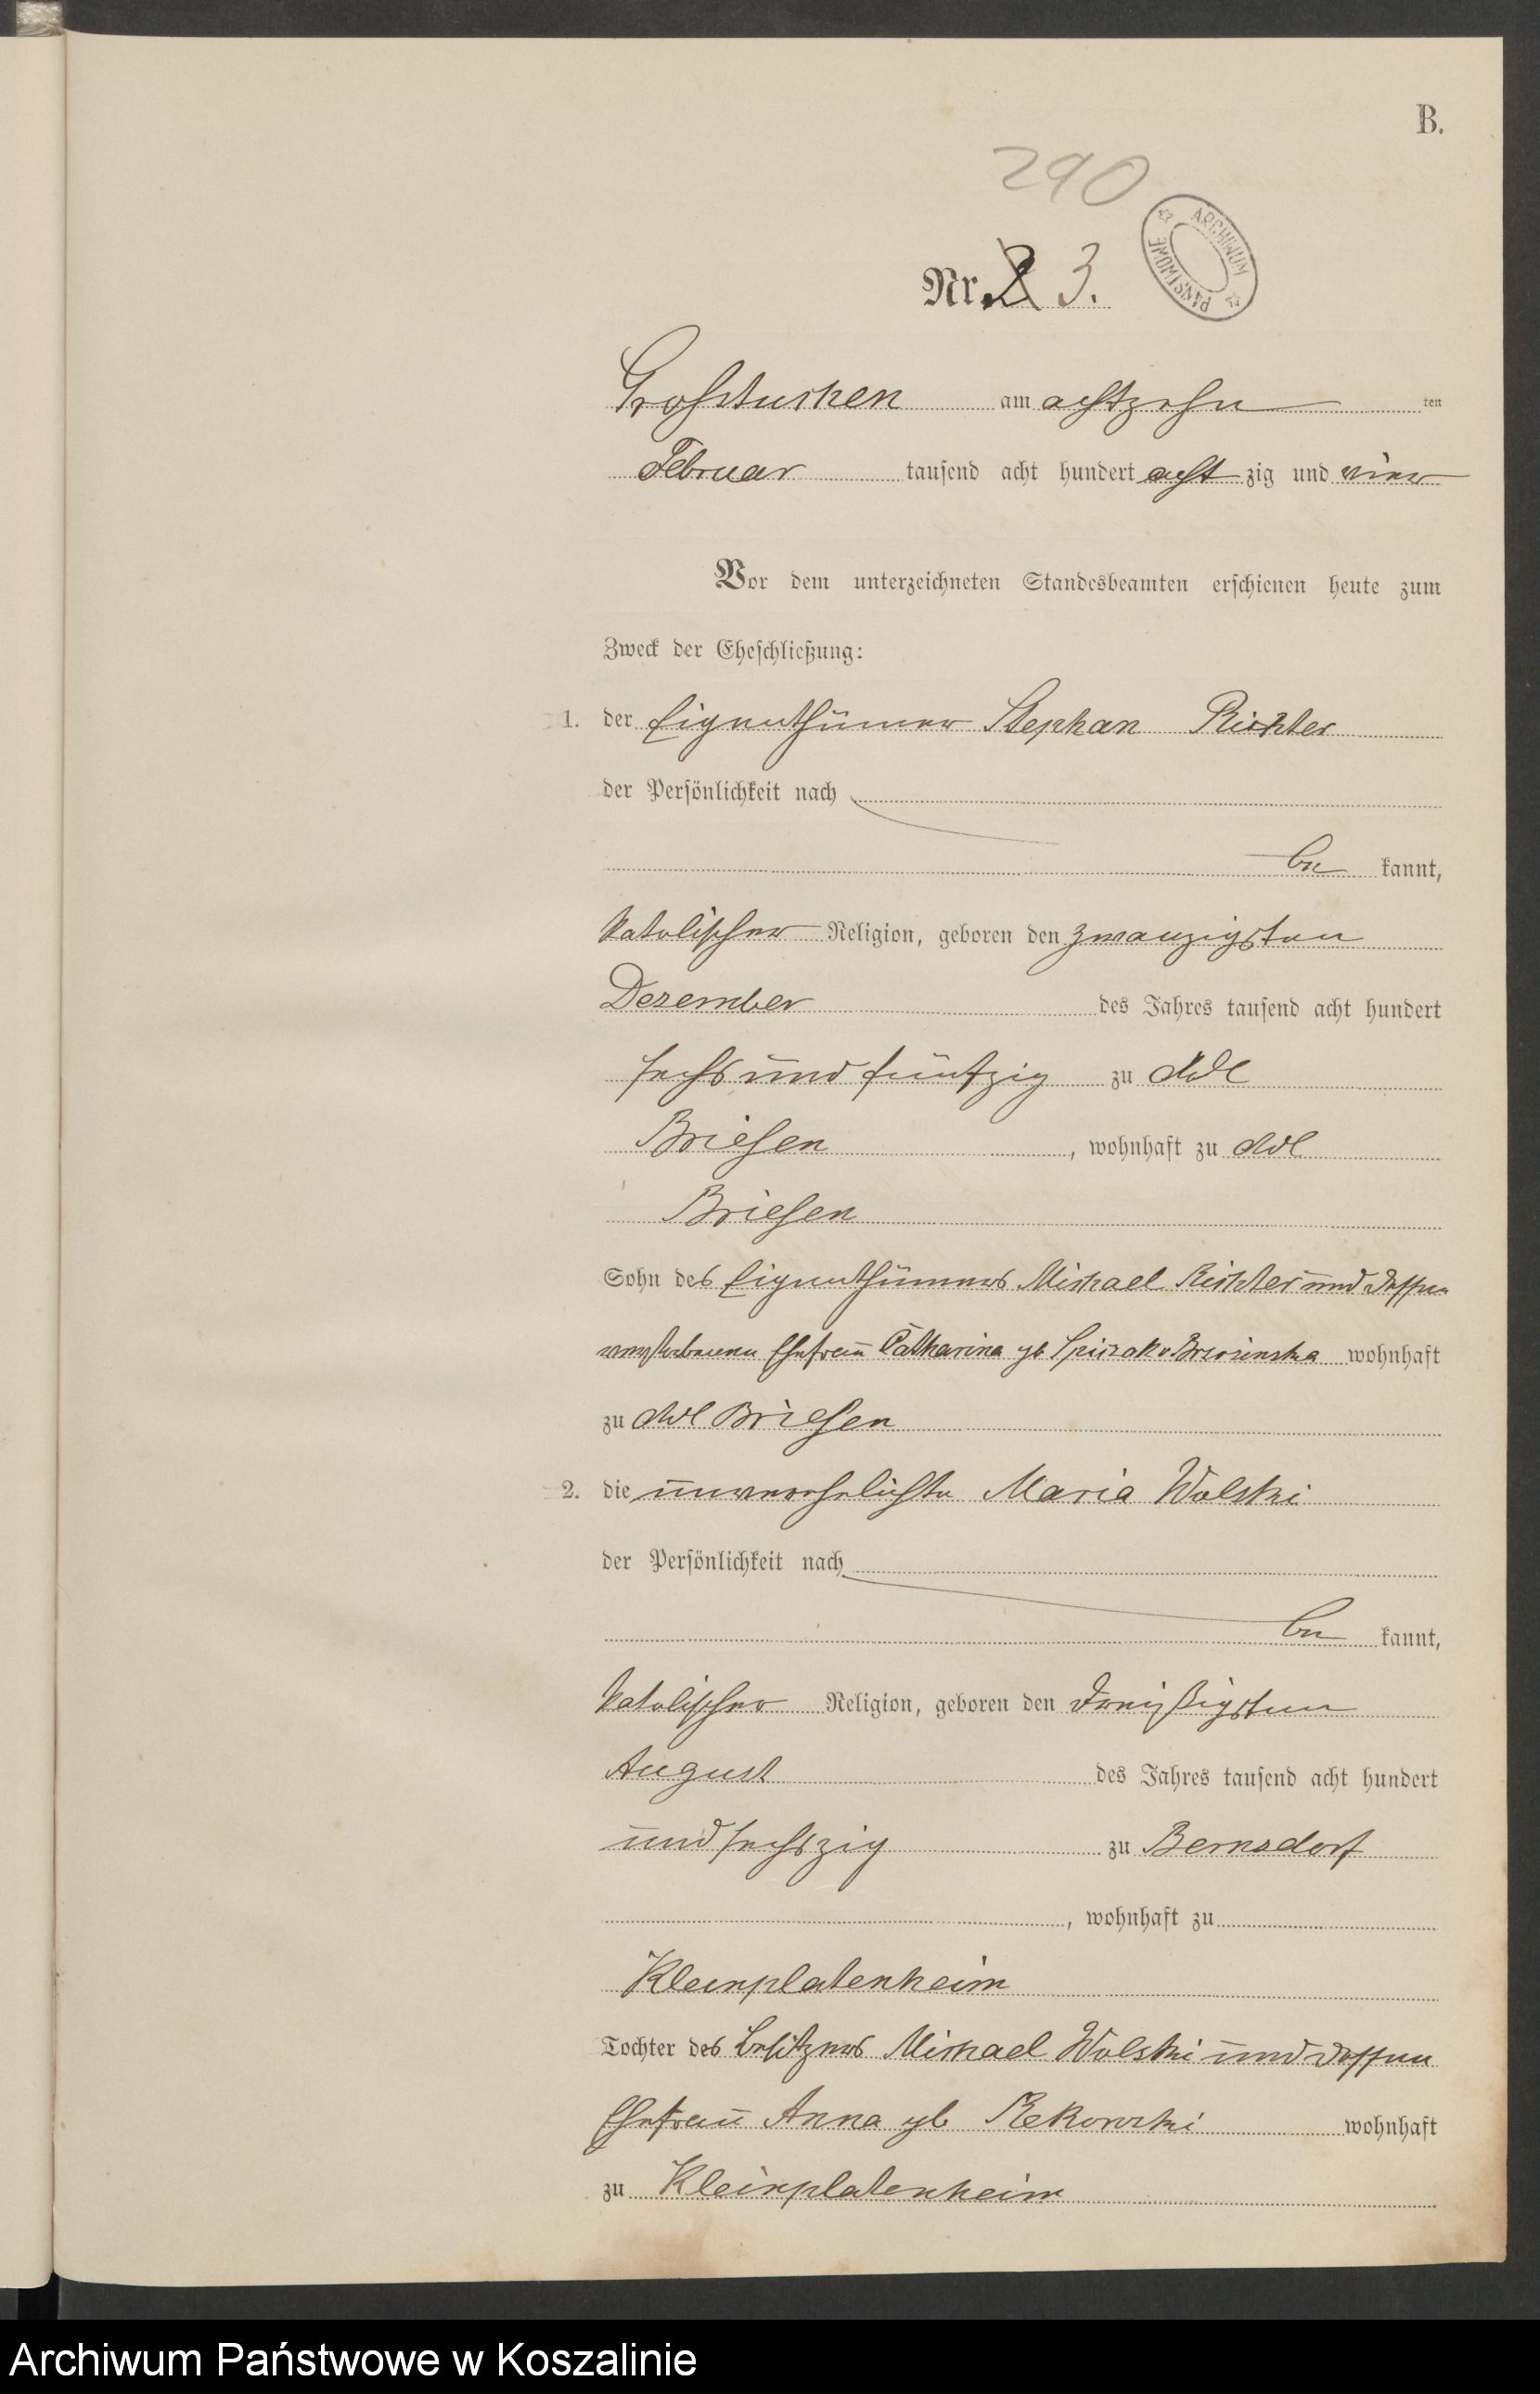 B.
290
ARCHIWUM PAŃSTWOWE
Nr. 2 3.
Grosstuchen am achtzehn ten
Februar tausend acht hundert acht zig und vier
Vor dem unterzeichneten Standesbeamten erschienen heute zum
Zweck der Eheschließung:
1. der Eigenthümer Stephan Richter
der Persönlichkeit nach
be kannt,
katolischer Religion, geboren den zwanzigsten
Dezember des Jahres tausend acht hundert
sechs und fünfzig zu Adl
Briesen, wohnhaft zu Adl
Briesen
Sohn des Eigenthümers Michael Richter und dessen
verstorbenen Ehefrau Catharina gb wohnhaft
zu Adl Briesen
2. die unverehelichte Maria Wolski
der Persönlichkeit nach
be kannt,
katolischer Religion, geboren den dreißigsten
August des Jahres tausend acht hundert
und sechszig zu Bernsdorf
, wohnhaft zu
Kleinplatenheim
Tochter des Besitzers Michael Wolski und dessen
Ehefrau Anna gb Rekowski wohnhaft
zu Kleinplatenheim
Archiwum Państwowe w Koszalinie